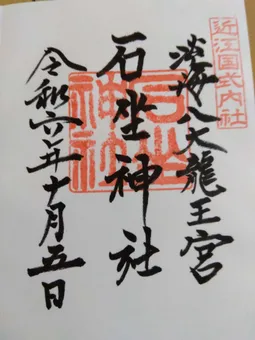 近江国式内社
淡海八大龍王宮
石坐神社
石坐
神社
令和六年十月五日